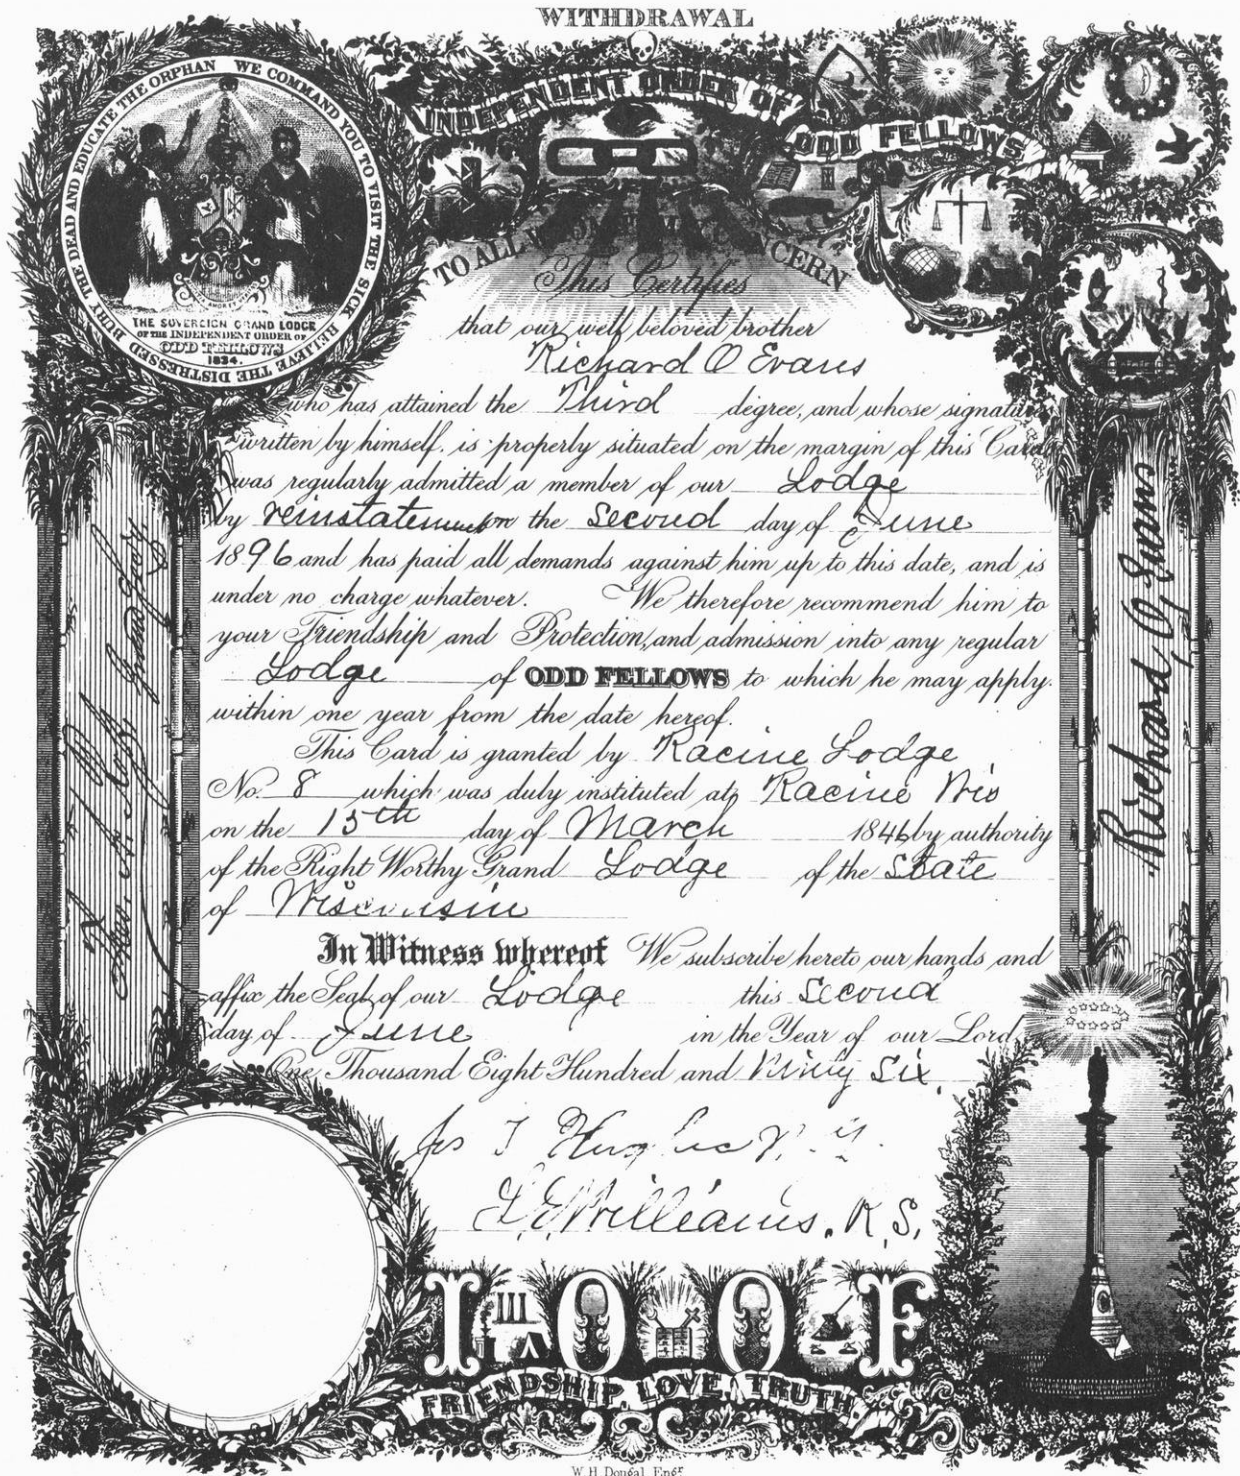 WITHDRAWAL
INDEPENDENT ORDER OF
ODD FELLOWS
WE COMMAND YOU TO VISIT THE SICK RELIEVE THE DISTRESSED BURY THE DEAD AND EDUCATE THE ORPHAN
THE SOVEREIGN GRAND LODGE
OF THE INDEPENDENT ORDER OF
ODD FELLOWS
1834.
TO ALL WHOM IT MAY CONCERN
This Certifies
that our well beloved brother
Richard O Evans
who has attained the Third degree, and whose signature
written by himself, is properly situated on the margin of this Card
was regularly admitted a member of our Lodge
by reinstatement on the Second day of June
1896 and has paid all demands against him up to this date, and is
under no charge whatever. We therefore recommend him to
your Friendship and Protection, and admission into any regular
Lodge of ODD FELLOWS to which he may apply.
within one year from the date hereof.
This Card is granted by Racine Lodge
No. 8 which was duly instituted at Racine Wis
on the 15th day of March 1846 by authority
of the Right Worthy Grand Lodge of the State
of Wisconsin
In Witness whereof We subscribe hereto our hands and
affix the Seal of our Lodge this Second
day of June in the Year of our Lord
One Thousand Eight Hundred and Ninty Six.
L. E. Williams, R.S.
Grand Secy.
Richard O Evans
I O O F
FRIENDSHIP, LOVE, TRUTH
W. H. Dougal, Engr.